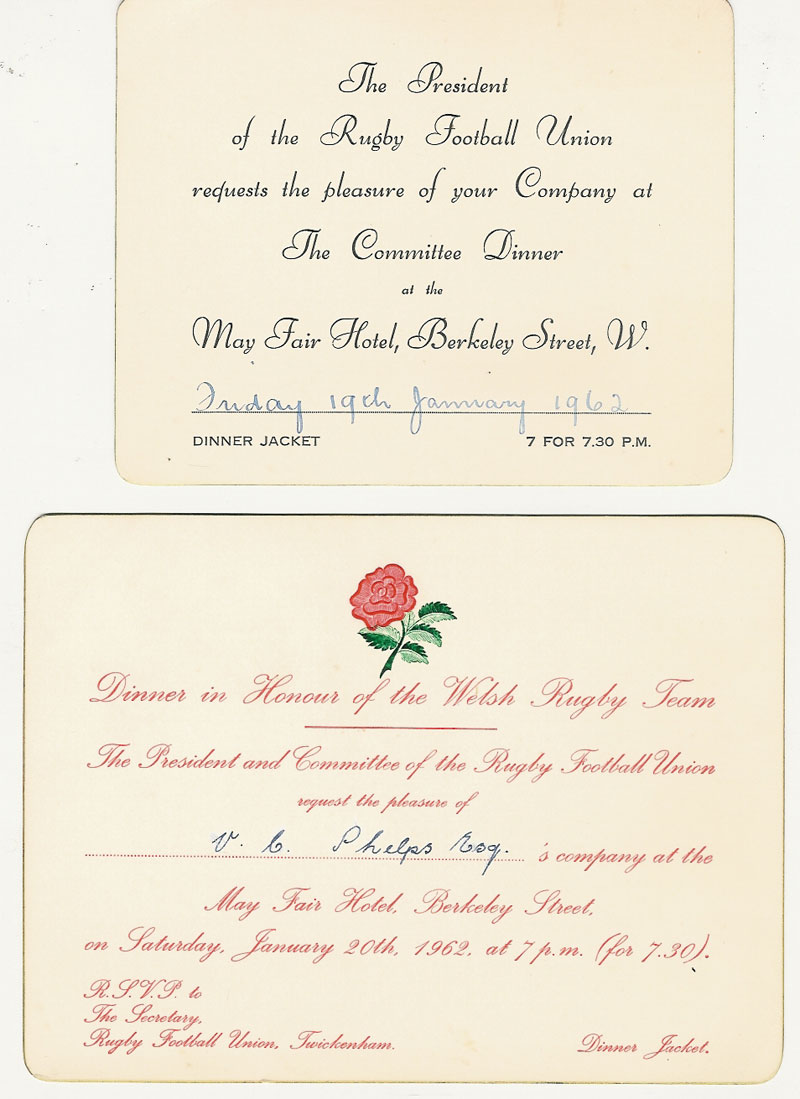 The President
of the Rugby Football Union
requests the pleasure of your Company at
The Committee Dinner
at the
May Fair Hotel, Berkeley Street, W.
Friday 19th January 1962
DINNER JACKET 7 FOR 7.30 P.M.
Dinner in Honour of the Welsh Rugby Team
The President and Committee of the Rugby Football Union
request the pleasure of
V. C. Phelps Esq. 's company at the
May Fair Hotel, Berkeley Street,
on Saturday, January 20th, 1962, at 7 p.m. (for 7.30).
R.S.V.P. to
The Secretary,
Rugby Football Union, Twickenham.
Dinner Jacket.